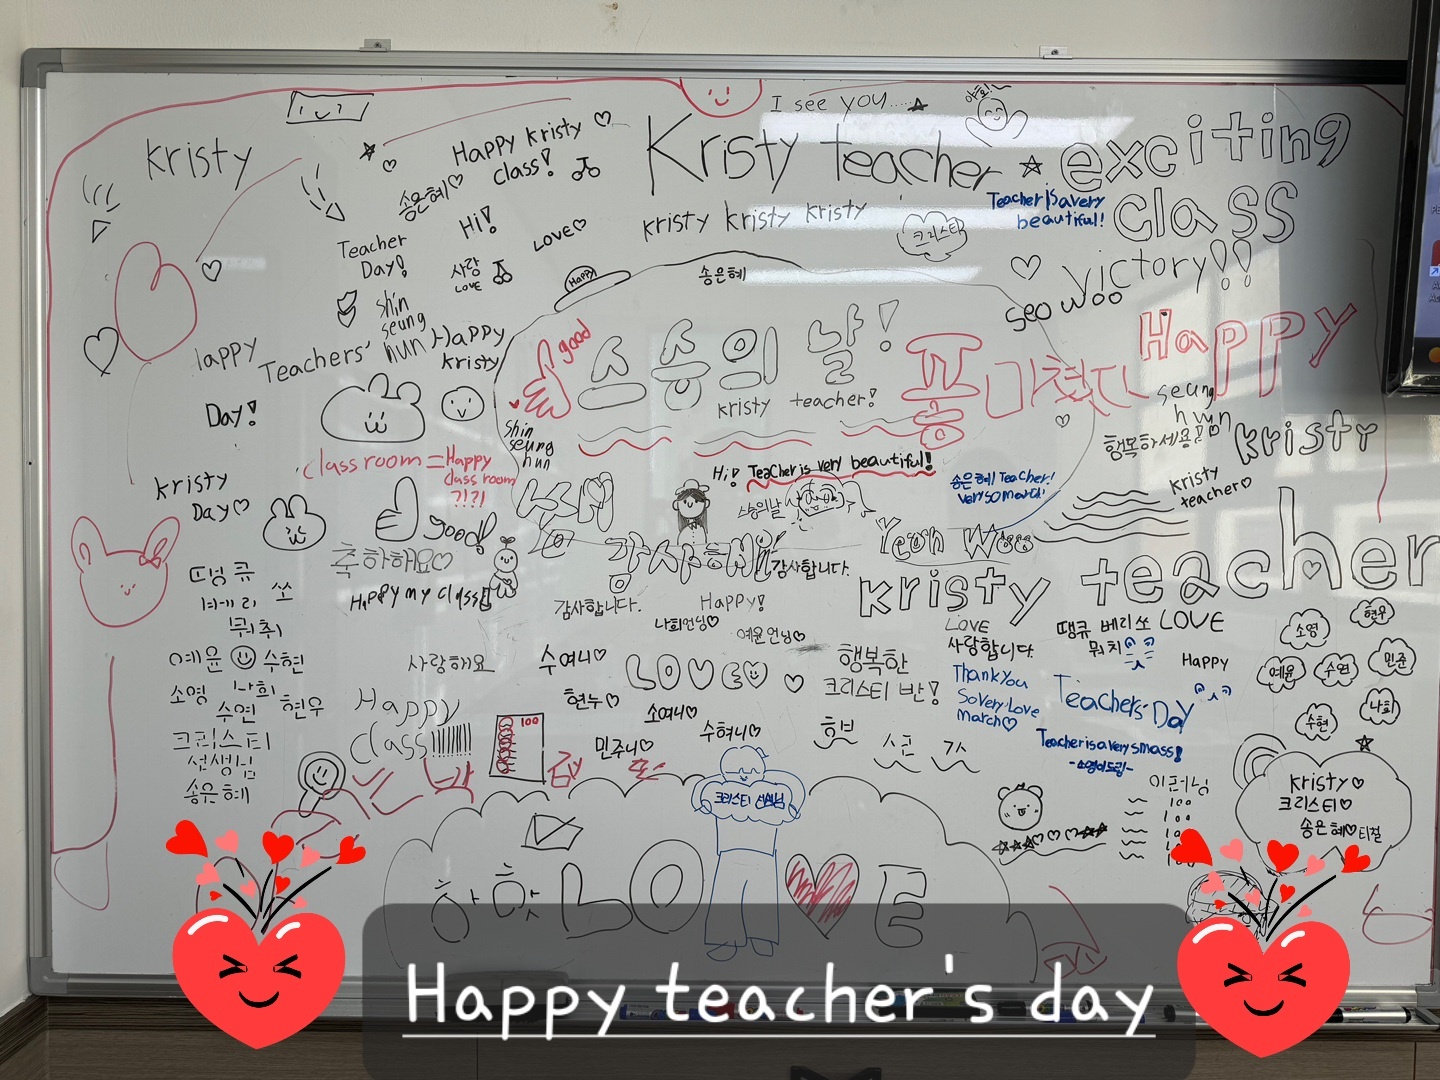 I see you....
아호!
Kristy
Happy Kristy
class!
Kristy teacher
exciting
class
송은혜
Hi!
Love
Teacher is a very
beautiful!
kristy kristy kristy
크리스티
Teacher
Day!
사랑
LOVE
Happy
송은혜
victory!!
seo woo
shin
seung
hun
Happy
kristy
good
스승의 날!
kristy teacher!
폼 미쳤다
Happy
Happy
Teachers'
Day!
shin
seung
hun
seung
hyun
행복하세용
kristy
class room = Happy
class room
?!?!
Hi! Teacher is very beautiful!
송은혜 Teacher!
very so march!
kristy
teacher
kristy
Day
good!
스승의날
Yeon Woo
teacher
축하해요
감사해
감사합니다.
Happy my class!
kristy
땡큐
쏘
뭐취
감사합니다.
Happy!
나희언닝
예윤언닝
LOVE
사랑합니다.
땡큐 베리쏘 LOVE
뭐치
Happy
소영
현우
예윤
수연
민준
나희
수현
예윤 수현
소영 나희
수연 현우
크리스티
선생님
송은혜
사랑해요
수여니
LOVE
행복한
크리스티 반!
Thank You
So Very Love
March
Teachers' Day
Teacher is a very smass!
-소영이드림-
Happy
class!!!!!!!!
현누
소여니
민주니
수혀니
100
크리스티 선생님
kristy
크리스티
송은혜 티철
100
100
LOVE
Happy teacher's day